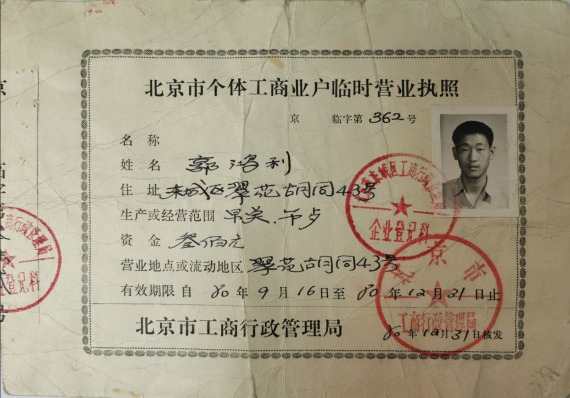 北京市个体工商业户临时营业执照
京 临字第 362 号
名称
姓名 郭鸿利
住址 东城区翠花胡同43号
生产或经营范围 早炎、午卢
资金 叁佰元
营业地点或流动地区 翠花胡同43号
有效期限自 80 年 9 月 16 日至 80 年 12 月 31 日止
北京市工商行政管理局
80 年 12 月 31 日核发
企业登记科
北京市
工商行政管理局
登记科